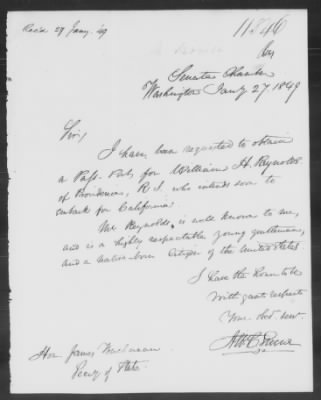 Rec'd 29 Jany. '49
11846
Senate Chamber
Washington Jany 27, 1849
Sir;
I have been requested to obtain
a Pass-Port, for William H. Reynolds
of Providence, R.I. who intends soon to
embark for California.
Mr Reynolds, is well known to me,
and is a highly respectable young gentleman,
and a native-born Citizen of the United States.
I have the honor to be
With great respect
Your. obt. serv.
Hon. James Buchanan
Secry of State.